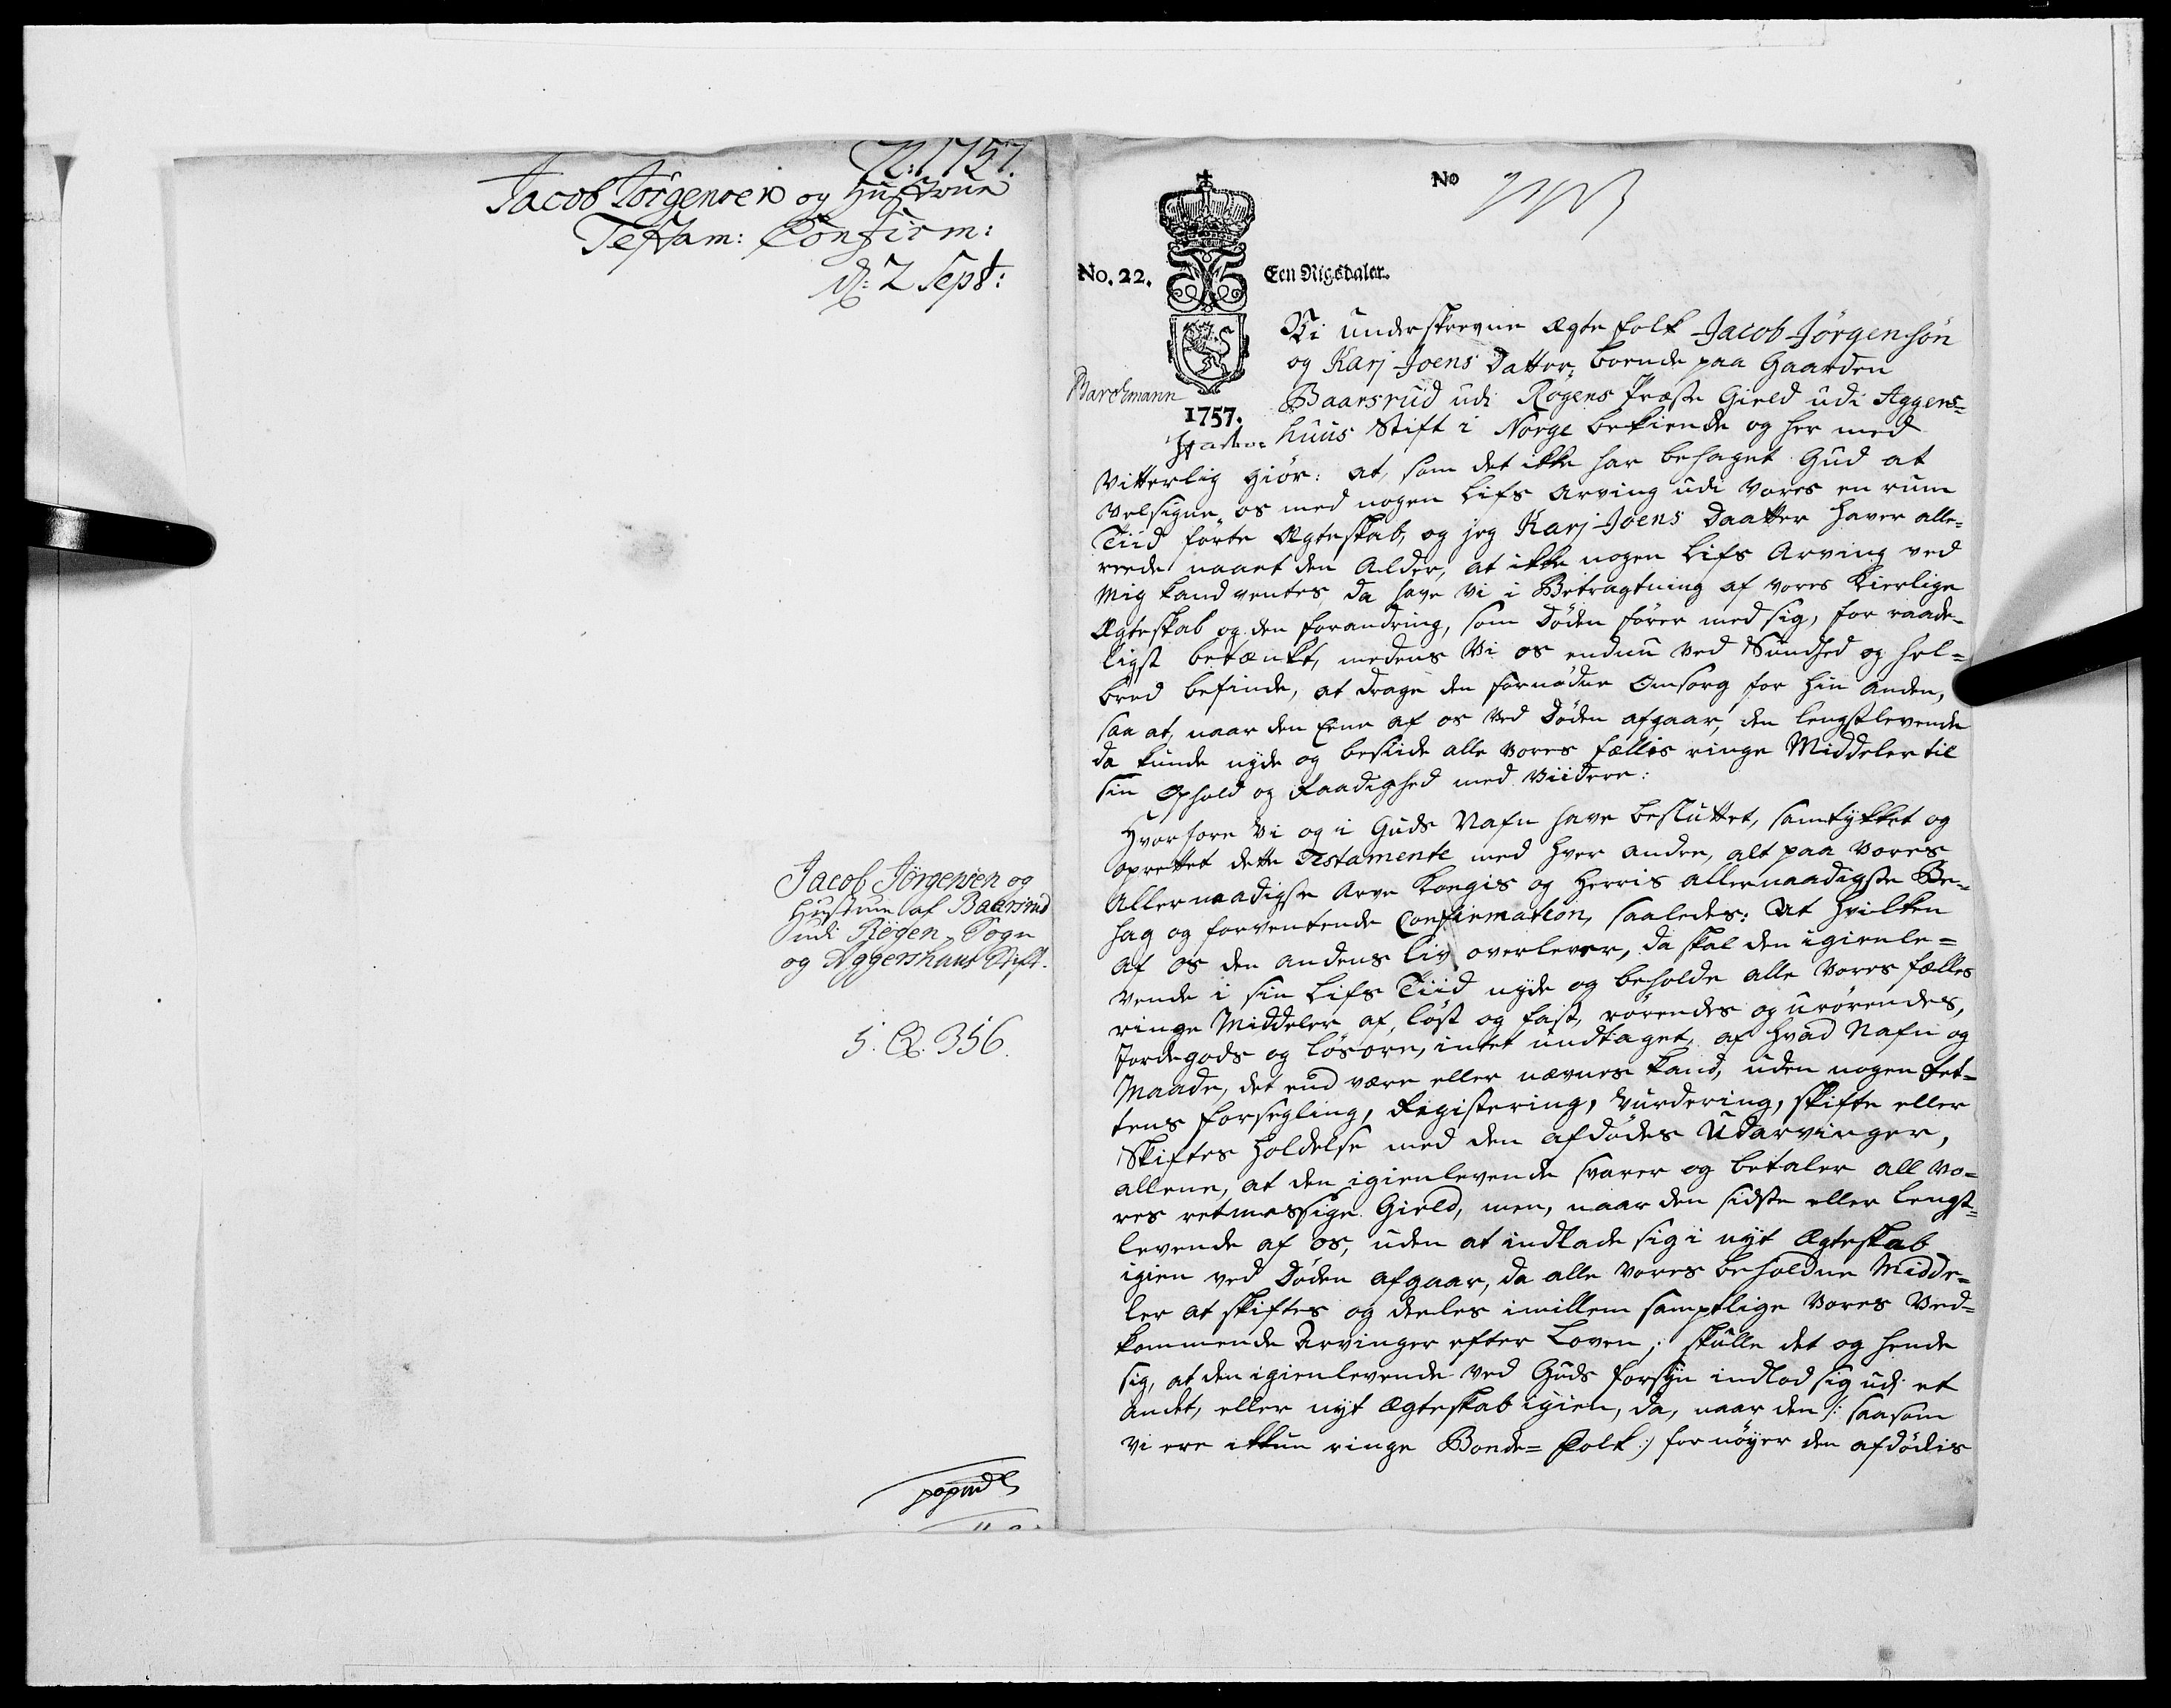 N: 1757.
Jacob Jörgensen og Hustrue
Testam: Confirm:
d: 2 Sept:
Jacob Jörgensen og
Hustrue af Baarsrud
udi Rögen Sogn
og Aggershuus Stift.
5. 356.
No
No. 22.
Een Rigsdaler.
Barchmann
1757.
Vi underskrevne Ægte folk Jacob Jörgensön
og Karj Joens Datter, boende paa Gaarden
Baarsrud udi Rögens Præste Gield udi Aggers=
huus Stift i Norge bekiende og her med
Vitterlig giör: at, som det ikke har behaget Gud at
velsigne os med nogen Lifs Arving udi vores en rum
Tiid förte Ægteskab, og jeg Karj Joens Daatter haver alle=
reede naaet den Alder, at ikke nogen Lifs Arving ved
mig kand ventes, da have vi i Betragtning af vores kierlige
Ægteskab og den forandring, som Döden förer med sig, for raade-
ligst betænkt, medens Vi os endnu ved Sundhed og hel=
bred befinde, at drage den fornödne Omsorg for hin anden,
saa at, naar den Eene af os ved Döden afgaar, den lengstlevende
da kunde nyde og beside alle vores fælles ringe Middeler til
sin Ophold og Raadighed med viidere:
Hvorfore Vi og i Guds Nafn have besluttet, samtykket og
oprettet dette Testamente med hver andre, alt paa vores
Allernaadigste Arve Kongis og Herris allernaadigste Be=
hag og forventende Confirmation, saaledes: At hvilken
af os den andens liv overlever, da skal den igienle=
vende i sin Lifs Tiid nyde og beholde alle vores fælles
ringe Middeler af löst og fast, rörendes og urörendes,
Jordegods og lösöre, intet undtaget, af hvad Nafn og
Maade, det end være eller nævnes kand, uden nogen Ret=
tens forsegling, Registering, Vurdering, skifte eller
Skiftes holdelse med den afdödes Udarvinger,
allene, at den igienlevende svarer og betaler all vo=
res retmessige Gield, men, naar den sidste eller lengst=
levende af os, uden at indlade sig i nyt Ægteskab
igien ved Döden afgaar, da alle vores beholdne Midde=
ler at skiftes og deeles imillem samptlige vores Ved=
kommende Arvinger efter Loven; skulle det og hende
sig, at den igienlevende ved Guds forsyn indlod sig udj et
andet, eller nyt Ægteskab igien, da, naar den /: saasom
vi ere ikkun ringe Bonde= Folk :/ fornöyer den afdödis